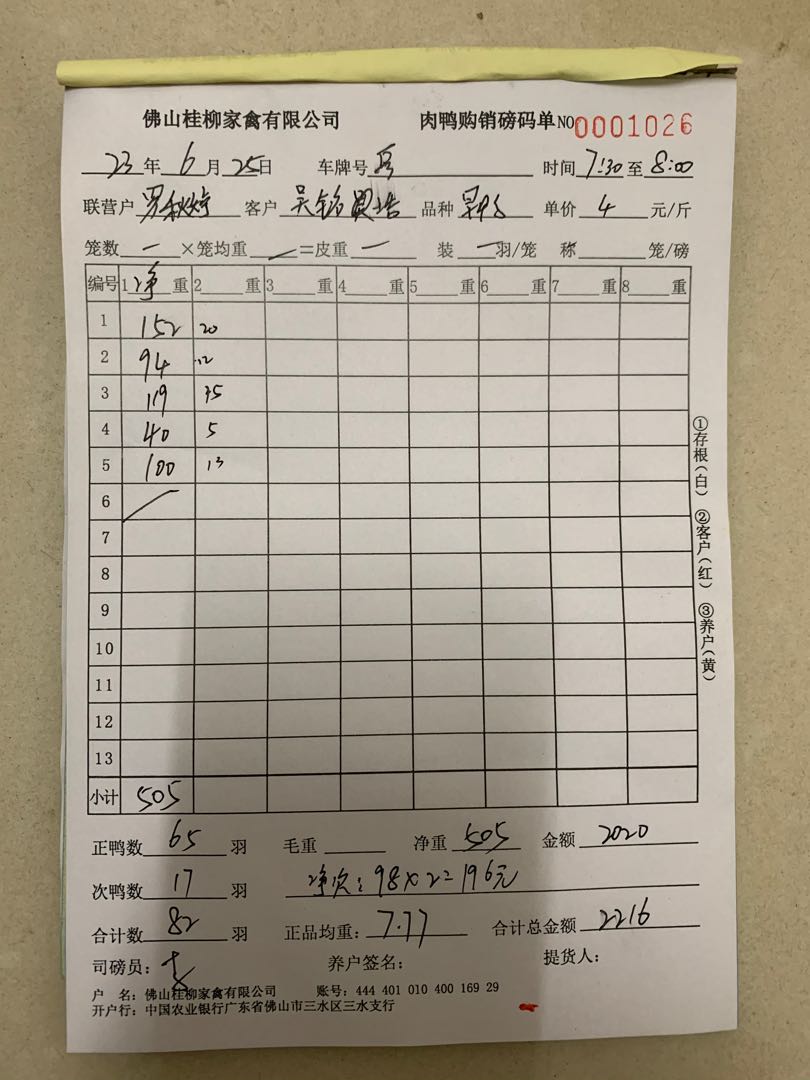 佛山桂柳家禽有限公司 肉鸭购销磅码单 NO 0001026
23年6月25日 车牌号 时间7:30至8:00
联营户 客户 吴铭 品种 单价 4 元/斤
笼数 一 ×笼均重 一 =皮重 一 装 一 羽/笼 称 笼/磅
编号 1 净 重 2 重 3 重 4 重 5 重 6 重 7 重 8 重
1 152 20
2 94 12
3 119
4 40 5
5 100 13
6
7
8
9
10
11
12
13
小计 505
正鸭数 65 羽 毛重 净重 505 金额 2020
次鸭数 17 羽 净次:98×2=196元
合计数 82 羽 正品均重:7.77 合计总金额 2216
司磅员: 养户签名: 提货人:
户 名:佛山桂柳家禽有限公司 账号:444 401 010 400 169 29
开户行:中国农业银行广东省佛山市三水区三水支行
①存根(白) ②客户(红) ③养户(黄)